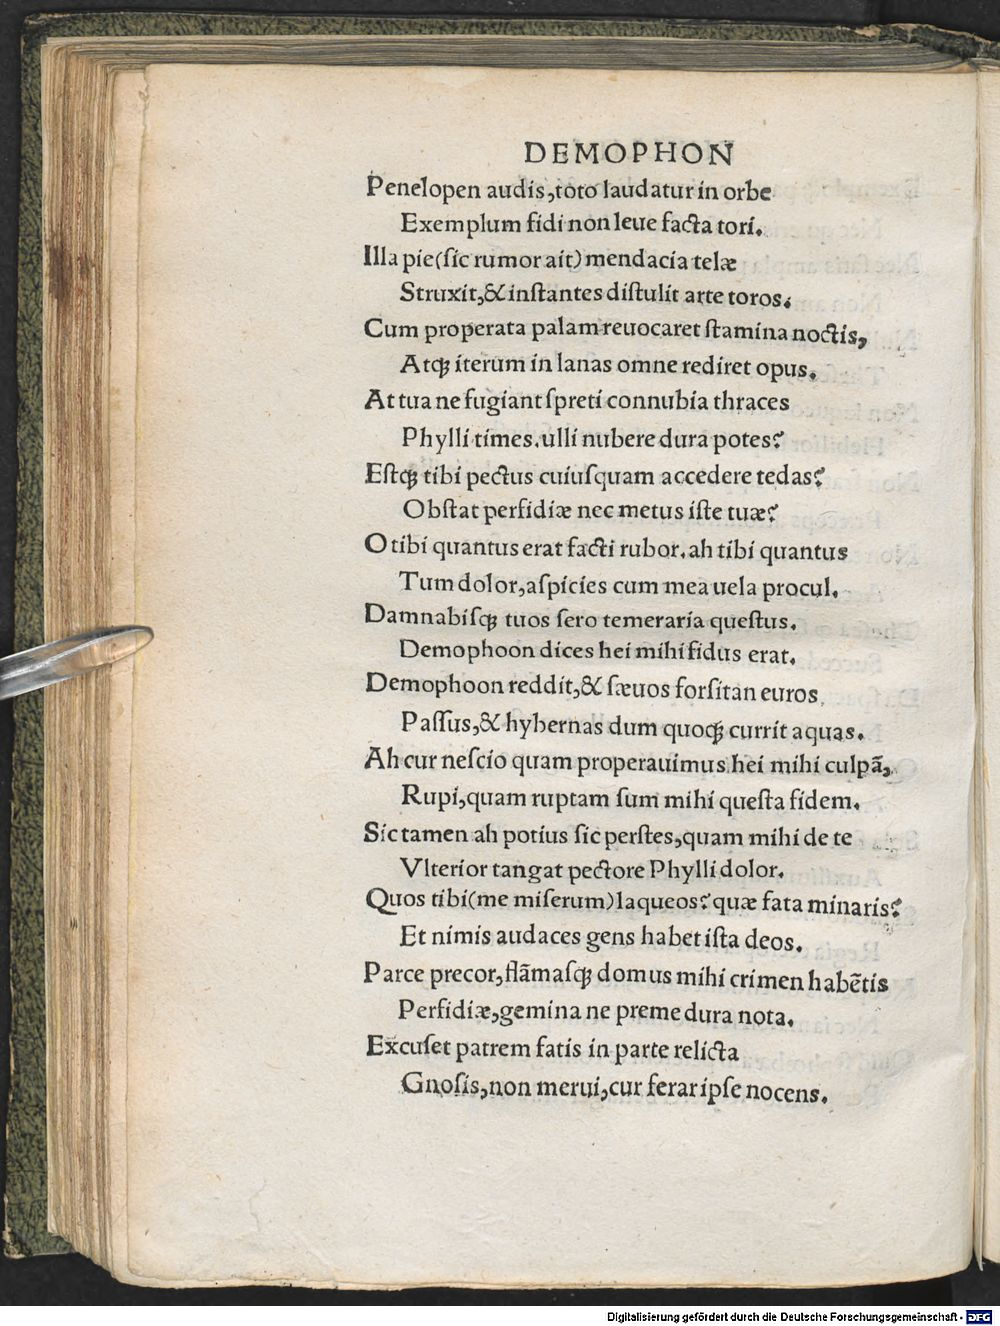 DEMOPHON
Penelopen audis,toto laudatur in orbe
Exemplum fidi non leue facta tori.
Illa pie(ſic rumor ait)mendacia telæ
Struxit,&inſtantes diſtulit arte toros.
Cum properata palam reuocaret ſtamina noctis,
Atqꝫ iterum in lanas omne rediret opus.
At tua ne fugiant ſpreti connubia thraces
Phylli times.ulli nubere dura potes?
Eſtqꝫ tibi pectus cuiuſquam accedere tedas?
Obſtat perfidiæ nec metus iſte tuæ?
O tibi quantus erat facti rubor.ah tibi quantus
Tum dolor,aſpicies cum mea uela procul.
Damnabiſqꝫ tuos ſero temeraria queſtus.
Demophoon dices hei mihi fidus erat.
Demophoon reddit,& ſæuos forſitan euros
Paſſus,& hybernas dum quoqꝫ currit aquas.
Ah cur neſcio quam properauimus hei mihi culpã,
Rupi,quam ruptam ſum mihi queſta fidem.
Sic tamen ah potius ſic perſtes,quam mihi de te
Vlterior tangat pectore Phylli dolor.
Quos tibi(me miſerum)laqueos?quæ fata minaris?
Et nimis audaces gens habet iſta deos.
Parce precor,flãmaſqꝫ domus mihi crimen habẽtis
Perfidiæ,gemina ne preme dura nota.
Excuſet patrem fatis in parte relicta
Gnoſis,non merui,cur ferar ipſe nocens.
Digitalisierung gefördert durch die Deutsche Forschungsgemeinschaft - DFG